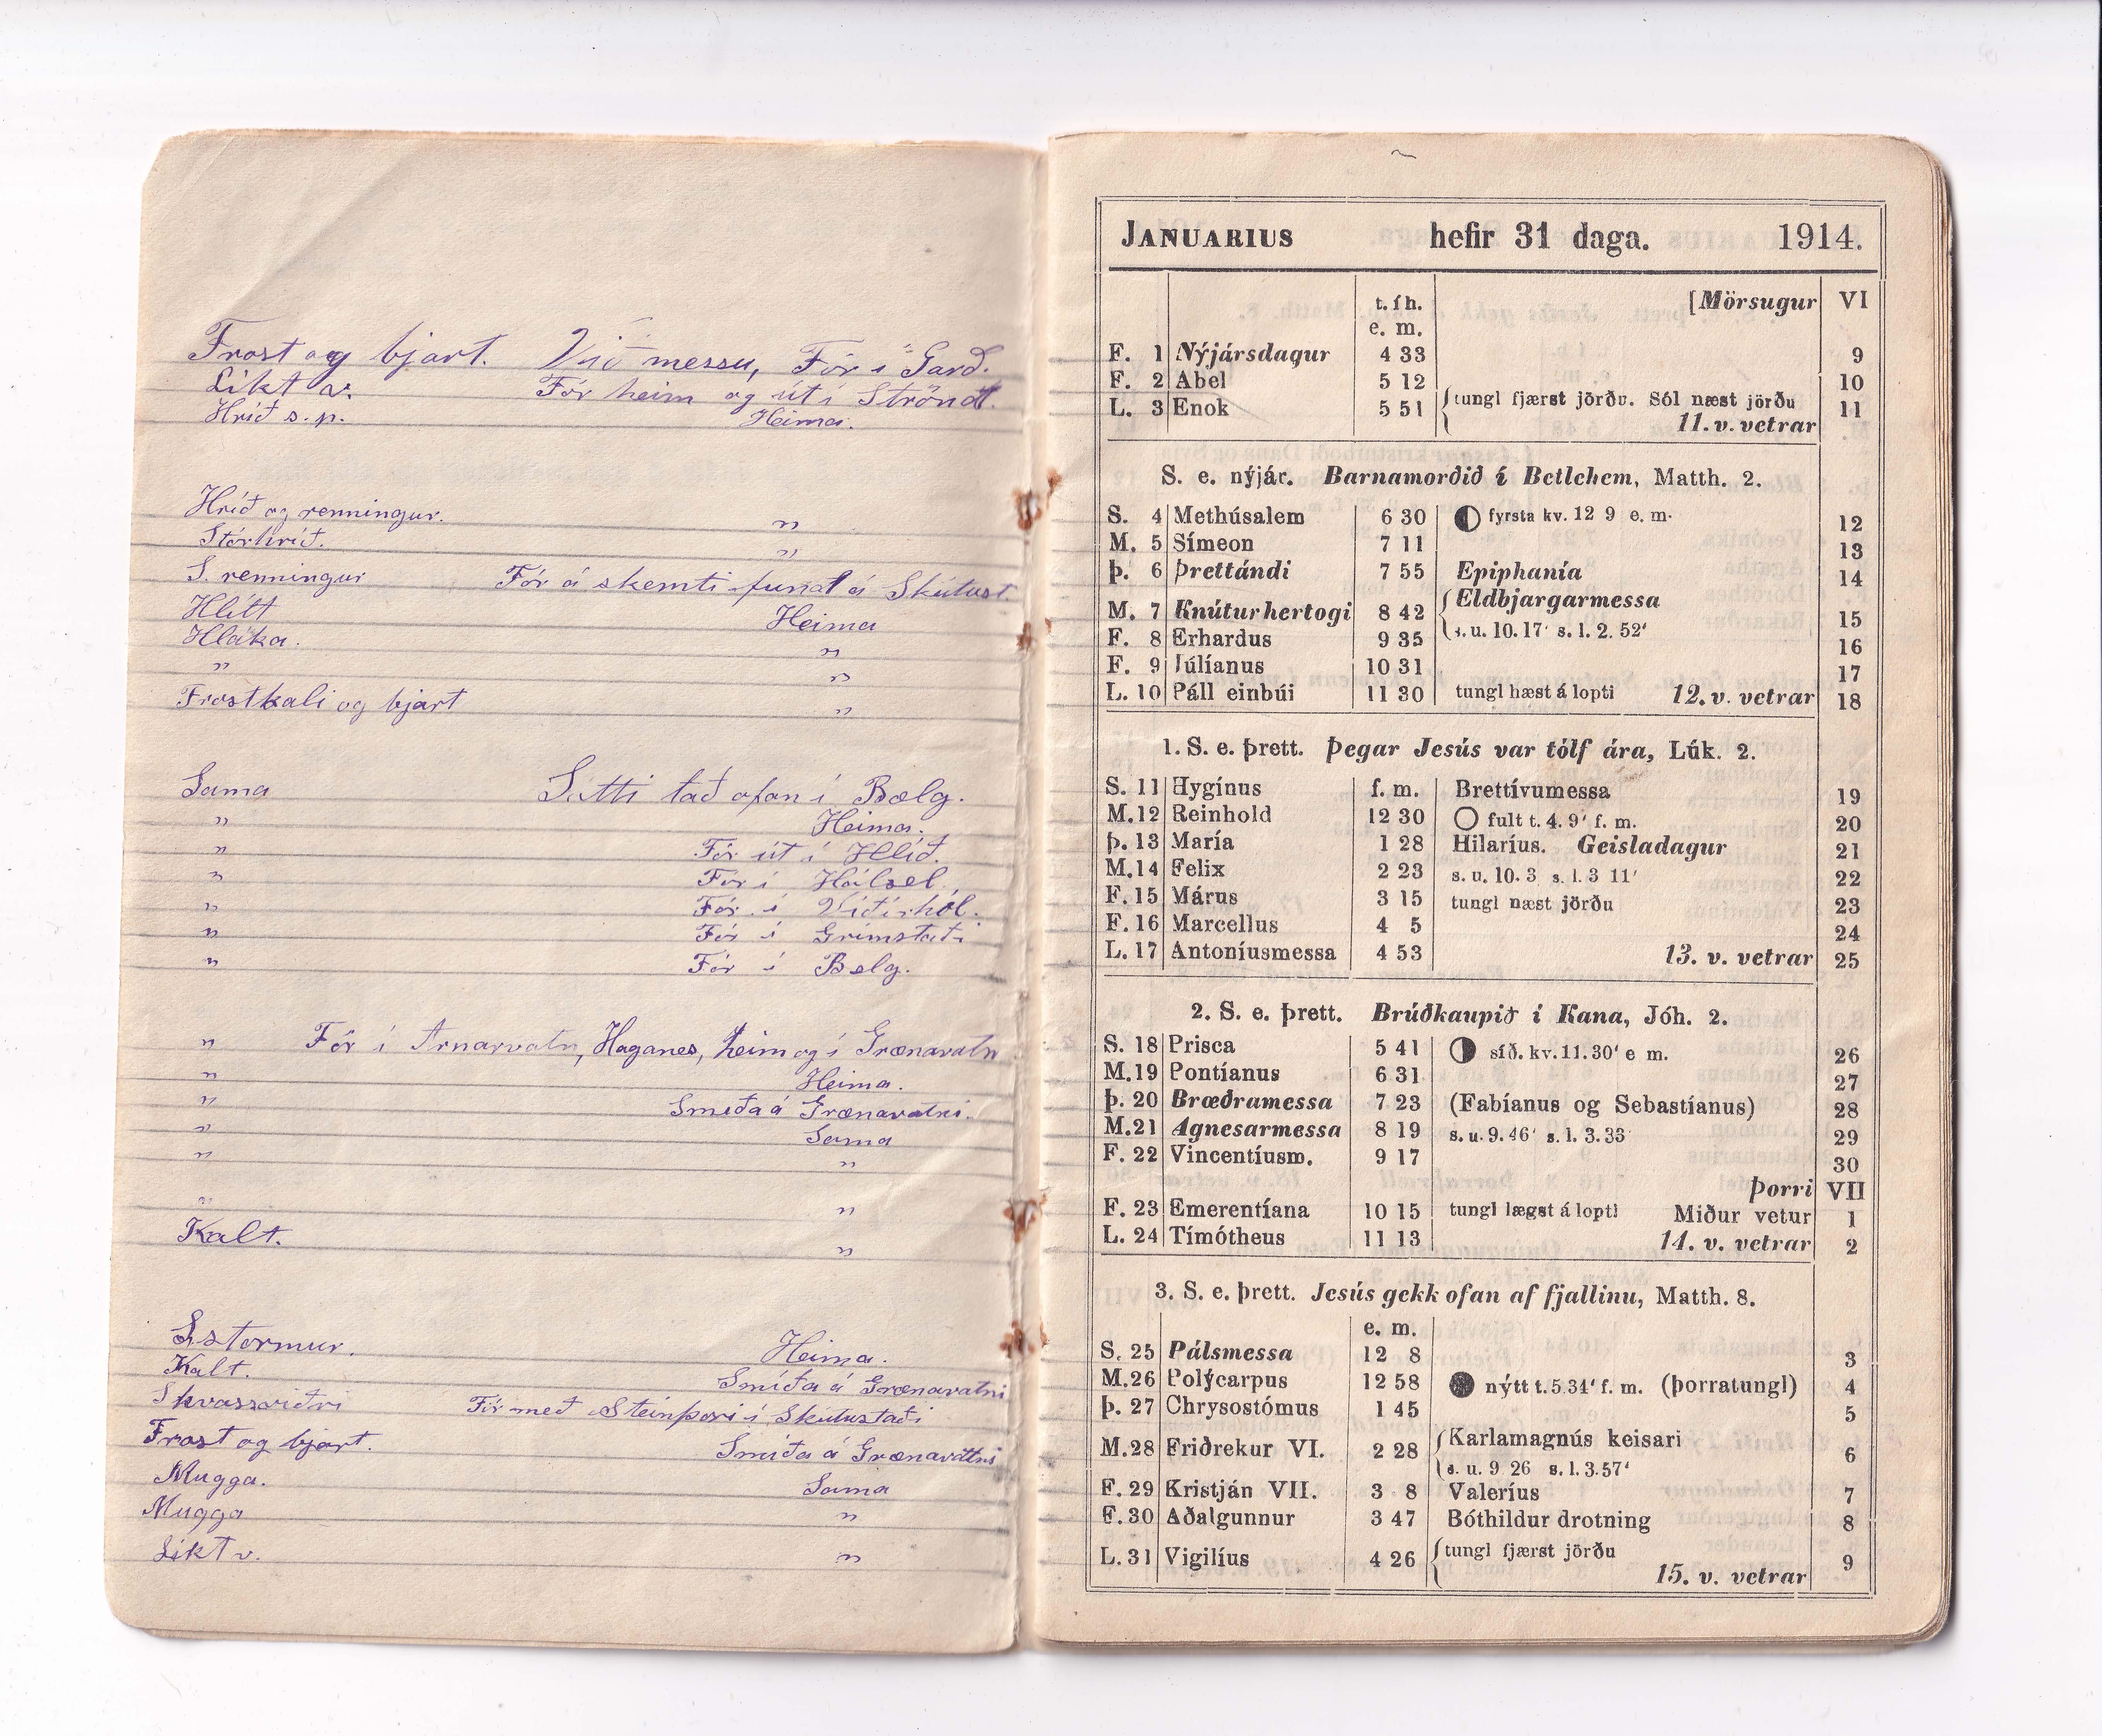 Frost og bjart. Við messu, Fór í Garð.
Líkt v. Fór heim og út í Strönd.
Hríð s.p. Heima.
Hríð og renningur. "
Stórhríð. "
S. renningur Fór á skemtifund á Skútust.
Hlítt Heima
Hláka. "
" "
Frostkali og bjart "
Sama Sótti tað ofan í Bælg.
" Heima.
" Fór út í Hlíð.
" Fór í Hálsel
" Fór í Víðirhól.
" Fór í Grímstaði
" Fór í Belg.
" Fór í Arnarvatn, Haganes, heim og í Grænavatn
" Heima.
" Smíða á Grænavatni.
" Sama
" "
" "
Kalt. "
S stormur. Heima.
Kalt. Smíða á Grænavatni
Skvassviðri Fór með Steinþóri í Skútustaði
Frost og bjart. Smíða á Grænavatni
Mugga. Sama
Mugga "
Líkt v. "
JANUARIUS hefir 31 daga. 1914.
t. í h. [Mörsugur VI
e. m.
F. 1 Nýjársdagur 4 33 9
F. 2 Abel 5 12 10
L. 3 Enok 5 51 tungl fjærst jörðu. Sól næst jörðu 11
11. v. vetrar
S. e. nýjár. Barnamorðið í Betlehem, Matth. 2.
S. 4 Methúsalem 6 30 fyrsta kv. 12 9 e. m. 12
M. 5 Símeon 7 11 13
Þ. 6 Þrettándi 7 55 Epiphanía 14
M. 7 Knútur hertogi 8 42 Eldbjargarmessa 15
s. u. 10. 17' s. l. 2. 52'
F. 8 Erhardus 9 35 16
F. 9 Júlíanus 10 31 17
L. 10 Páll einbúi 11 30 tungl hæst á lopti 12. v. vetrar 18
1. S. e. þrett. Þegar Jesús var tólf ára, Lúk. 2.
S. 11 Hygínus f. m. Brettívumessa 19
M. 12 Reinhold 12 30 fult t. 4. 9' f. m. 20
Þ. 13 María 1 28 Hilaríus. Geisladagur 21
M. 14 Felix 2 23 s. u. 10. 3 s. l. 3 11' 22
F. 15 Márus 3 15 tungl næst jörðu 23
F. 16 Marcellus 4 5 24
L. 17 Antoníusmessa 4 53 13. v. vetrar 25
2. S. e. þrett. Brúðkaupið í Kana, Jóh. 2.
S. 18 Prisca 5 41 síð. kv. 11. 30' e m. 26
M. 19 Pontíanus 6 31 27
Þ. 20 Bræðramessa 7 23 (Fabíanus og Sebastíanus) 28
M. 21 Agnesarmessa 8 19 s. u. 9. 46' s. l. 3. 33' 29
F. 22 Vincentíusm. 9 17 30
Þorri VII
F. 23 Emerentíana 10 15 tungl lægst á lopti Miður vetur 1
L. 24 Tímótheus 11 13 14. v. vetrar 2
3. S. e. þrett. Jesús gekk ofan af fjallinu, Matth. 8.
e. m.
S. 25 Pálsmessa 12 8 3
M. 26 Polýcarpus 12 58 nýtt t. 5 34' f. m. (þorratungl) 4
Þ. 27 Chrysostómus 1 45 5
M. 28 Friðrekur VI. 2 28 Karlamagnús keisari 6
s. u. 9 26 s. l. 3. 57'
F. 29 Kristján VII. 3 8 Valeríus 7
F. 30 Aðalgunnur 3 47 Bóthildur drotning 8
L. 31 Vigilíus 4 26 tungl fjærst jörðu 9
15. v. vetrar